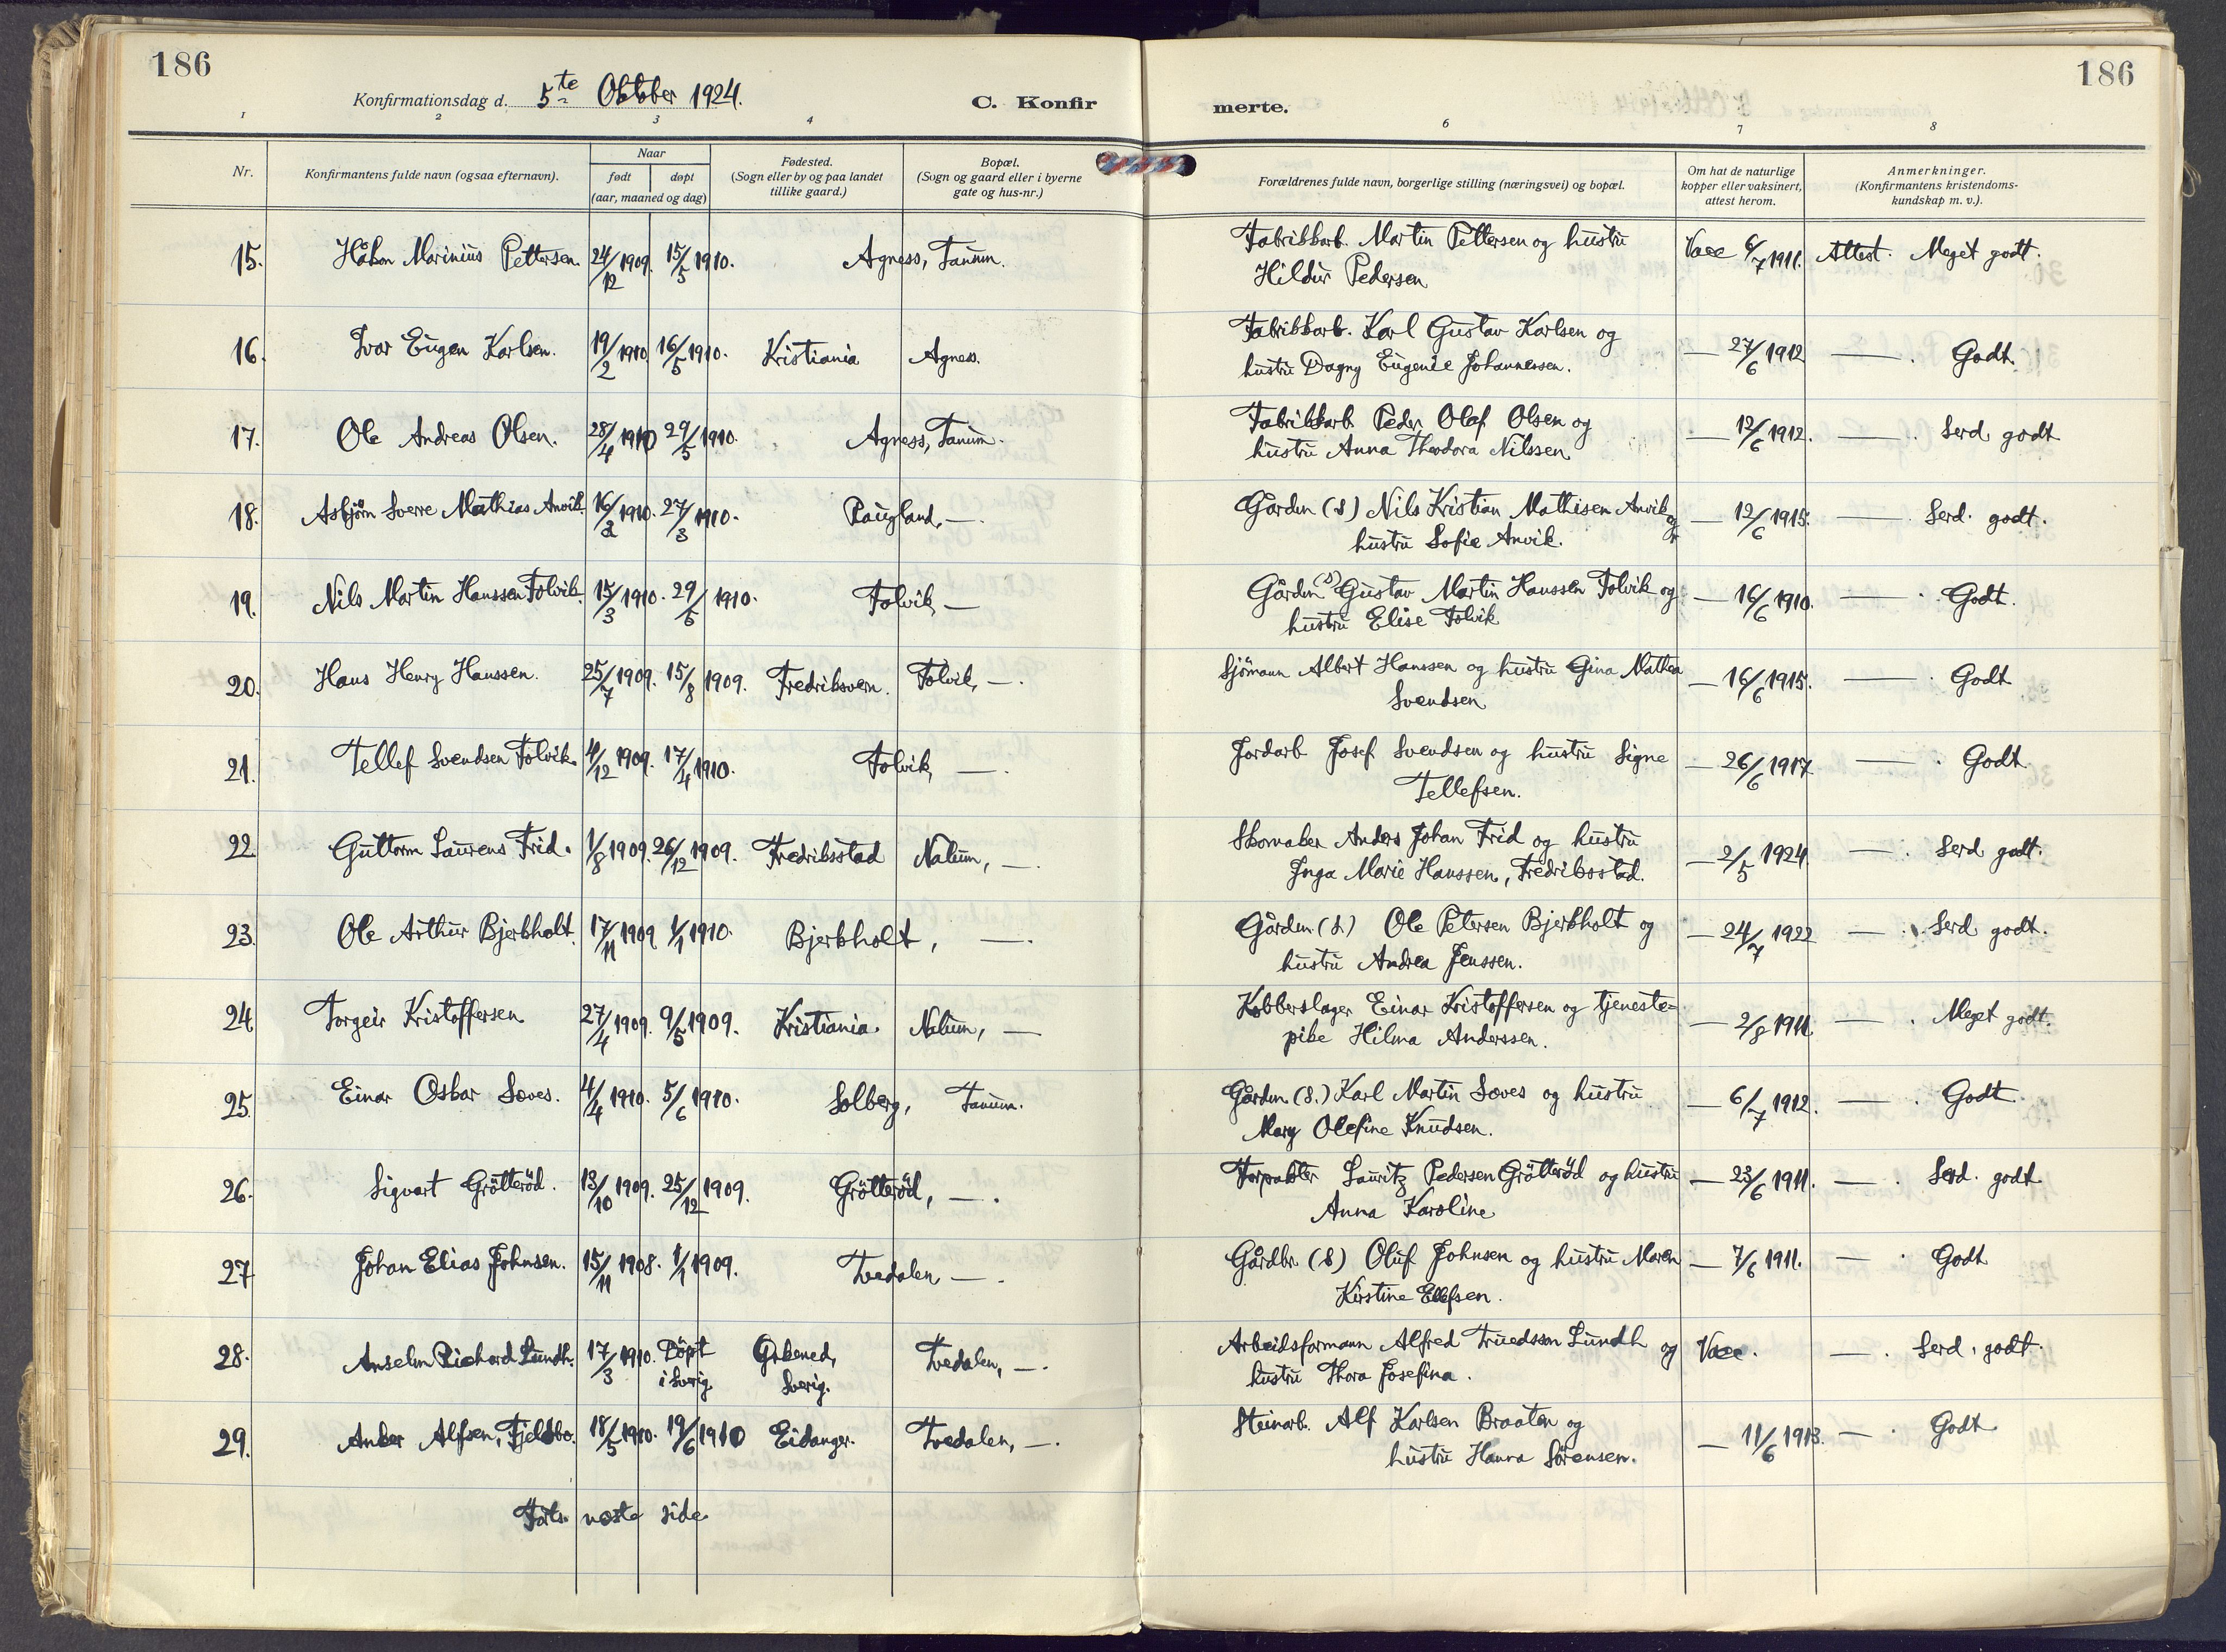 186
186
Konfirmationsdag d. 5te Oktober 1924.
C. Konfir
merte.
1 2 3 4 6 7 8
Nr.
Konfirmantens fulde navn (ogsaa efternavn).
Naar
født døpt
(aar, maaned og dag)
Fødested.
(Sogn eller by og paa landet
tillike gaard.)
Bopæl.
(Sogn og gaard eller i byerne
gate og hus-nr.)
Forældrenes fulde navn, borgerlige stilling (næringsvei) og bopæl.
Om hat de naturlige
kopper eller vaksinert,
attest herom.
Anmerkninger.
(Konfirmantens kristendoms-
kundskap m. v.).
15. Håkon Marinius Pettersen. 24/12 1909. 15/5 1910. Agness, Tanum. Fabrikkarb. Martin Pettersen og hustru Vacc 6/7 1911. Attest. Meget godt.
Hildur Pedersen
16. Ivar Eugen Karlsen. 19/2 1910. 16/5 1910. Kristiania Agness. Fabrikkarb. Karl Gustav Karlsen og — 27/6 1912 — . Godt.
hustru Dagny Eugenie Johannessen.
17. Ole Andreas Olsen. 28/4 1910 29/5 1910. Agness, Tanum. Fabrikkarb. Peder Olaf Olsen og — 12/6 1912. — . Serd godt
hustru Anna Theodora Nilssen
18. Asbjørn Sverre Mathias Anvik. 16/2 1910. 27/3 1910. Paugland, —. Gårdm (S) Nils Kristian Mathisen Anvik og — 12/6 1915. — . Serd. godt.
hustru Sofie Anvik.
19. Nils Martin Hanssen Folvik. 15/3 1910. 29/5 1910. Folvik, — Gårdm (S) Gustav Martin Hanssen Folvik og — 16/6 1910. — . Godt.
hustru Elise Folvik
20. Hans Henry Hanssen. 25/7 1909. 15/8 1909. Fredriksvern. Folvik, —. Sjömann Albert Hanssen og hustru Gina Mathea — 16/6 1915. — . Godt
Svendsen
21. Tellef Svendsen Folvik. 4/12 1909. 17/4 1910. Folvik, —. Jordarb Josef Svendsen og hustru Signe — 26/6 1917 — . Godt
Tellefsen.
22. Guttorm Laurens Frid. 1/8 1909. 26/12 1909. Fredriksstad Nalum, —. Skomaker Anders Johan Frid og hustru — 2/5 1924. — . Serd godt.
Inga Marie Hanssen, Fredriksstad.
23. Ole Arthur Bjerkholt. 17/11 1909 1/1 1910. Bjerkholt, —. Gårdm. (S.) Ole Petersen Bjerkholt og — 24/7 1922 — . Serd godt.
hustru Andrea Jenssen.
24 Torgeir Kristoffersen 27/4 1909. 9/5 1909. Kristiania. Nalum, — Kobberslager Einar Kristoffersen og tjeneste= — 2/8 1911. — . Meget godt.
pike Hilma Anderssen.
25. Einar Oskar Soves. 4/4 1910. 5/6 1910. Solberg, Tanum. Gårdm (S.) Karl Martin Soves og hustru — 6/7 1912. — . Godt
Mary Olefine Knudsen.
26. Sigvart Grötteröd. 13/10 1909. 25/12 1909. Grötteröd, —. Forpakter Lauritz Pedersen Grötteröd og hustru — 23/6 1911. — . Serd. godt
Anna Karoline
27 Johan Elias Johnsen. 15/11 1908. 1/1 1909. Tvedalen —. Gårdbr (S) Oluf Johnsen og hustru Maren — 7/6 1911. — . Godt
Kirstine Ellefsen.
28. Anselm Richard Lundh. 17/3 1910. Döpt Tvedalen, —. Arbeidsformann Alfred Truedsson Lundh og Vacc. — . Serd. godt.
i Sverig. Sverig. hustru Thora Josefina.
29. Anker Alfsen, Fjeldbo. 18/5 1910. 19/6 1910 Eidanger. Tvedalen, —. Steinarb. Alf Karlsen Braaten og — 11/6 1913. — . Godt
hustru Hanna Sörensen.
Forts. næste side